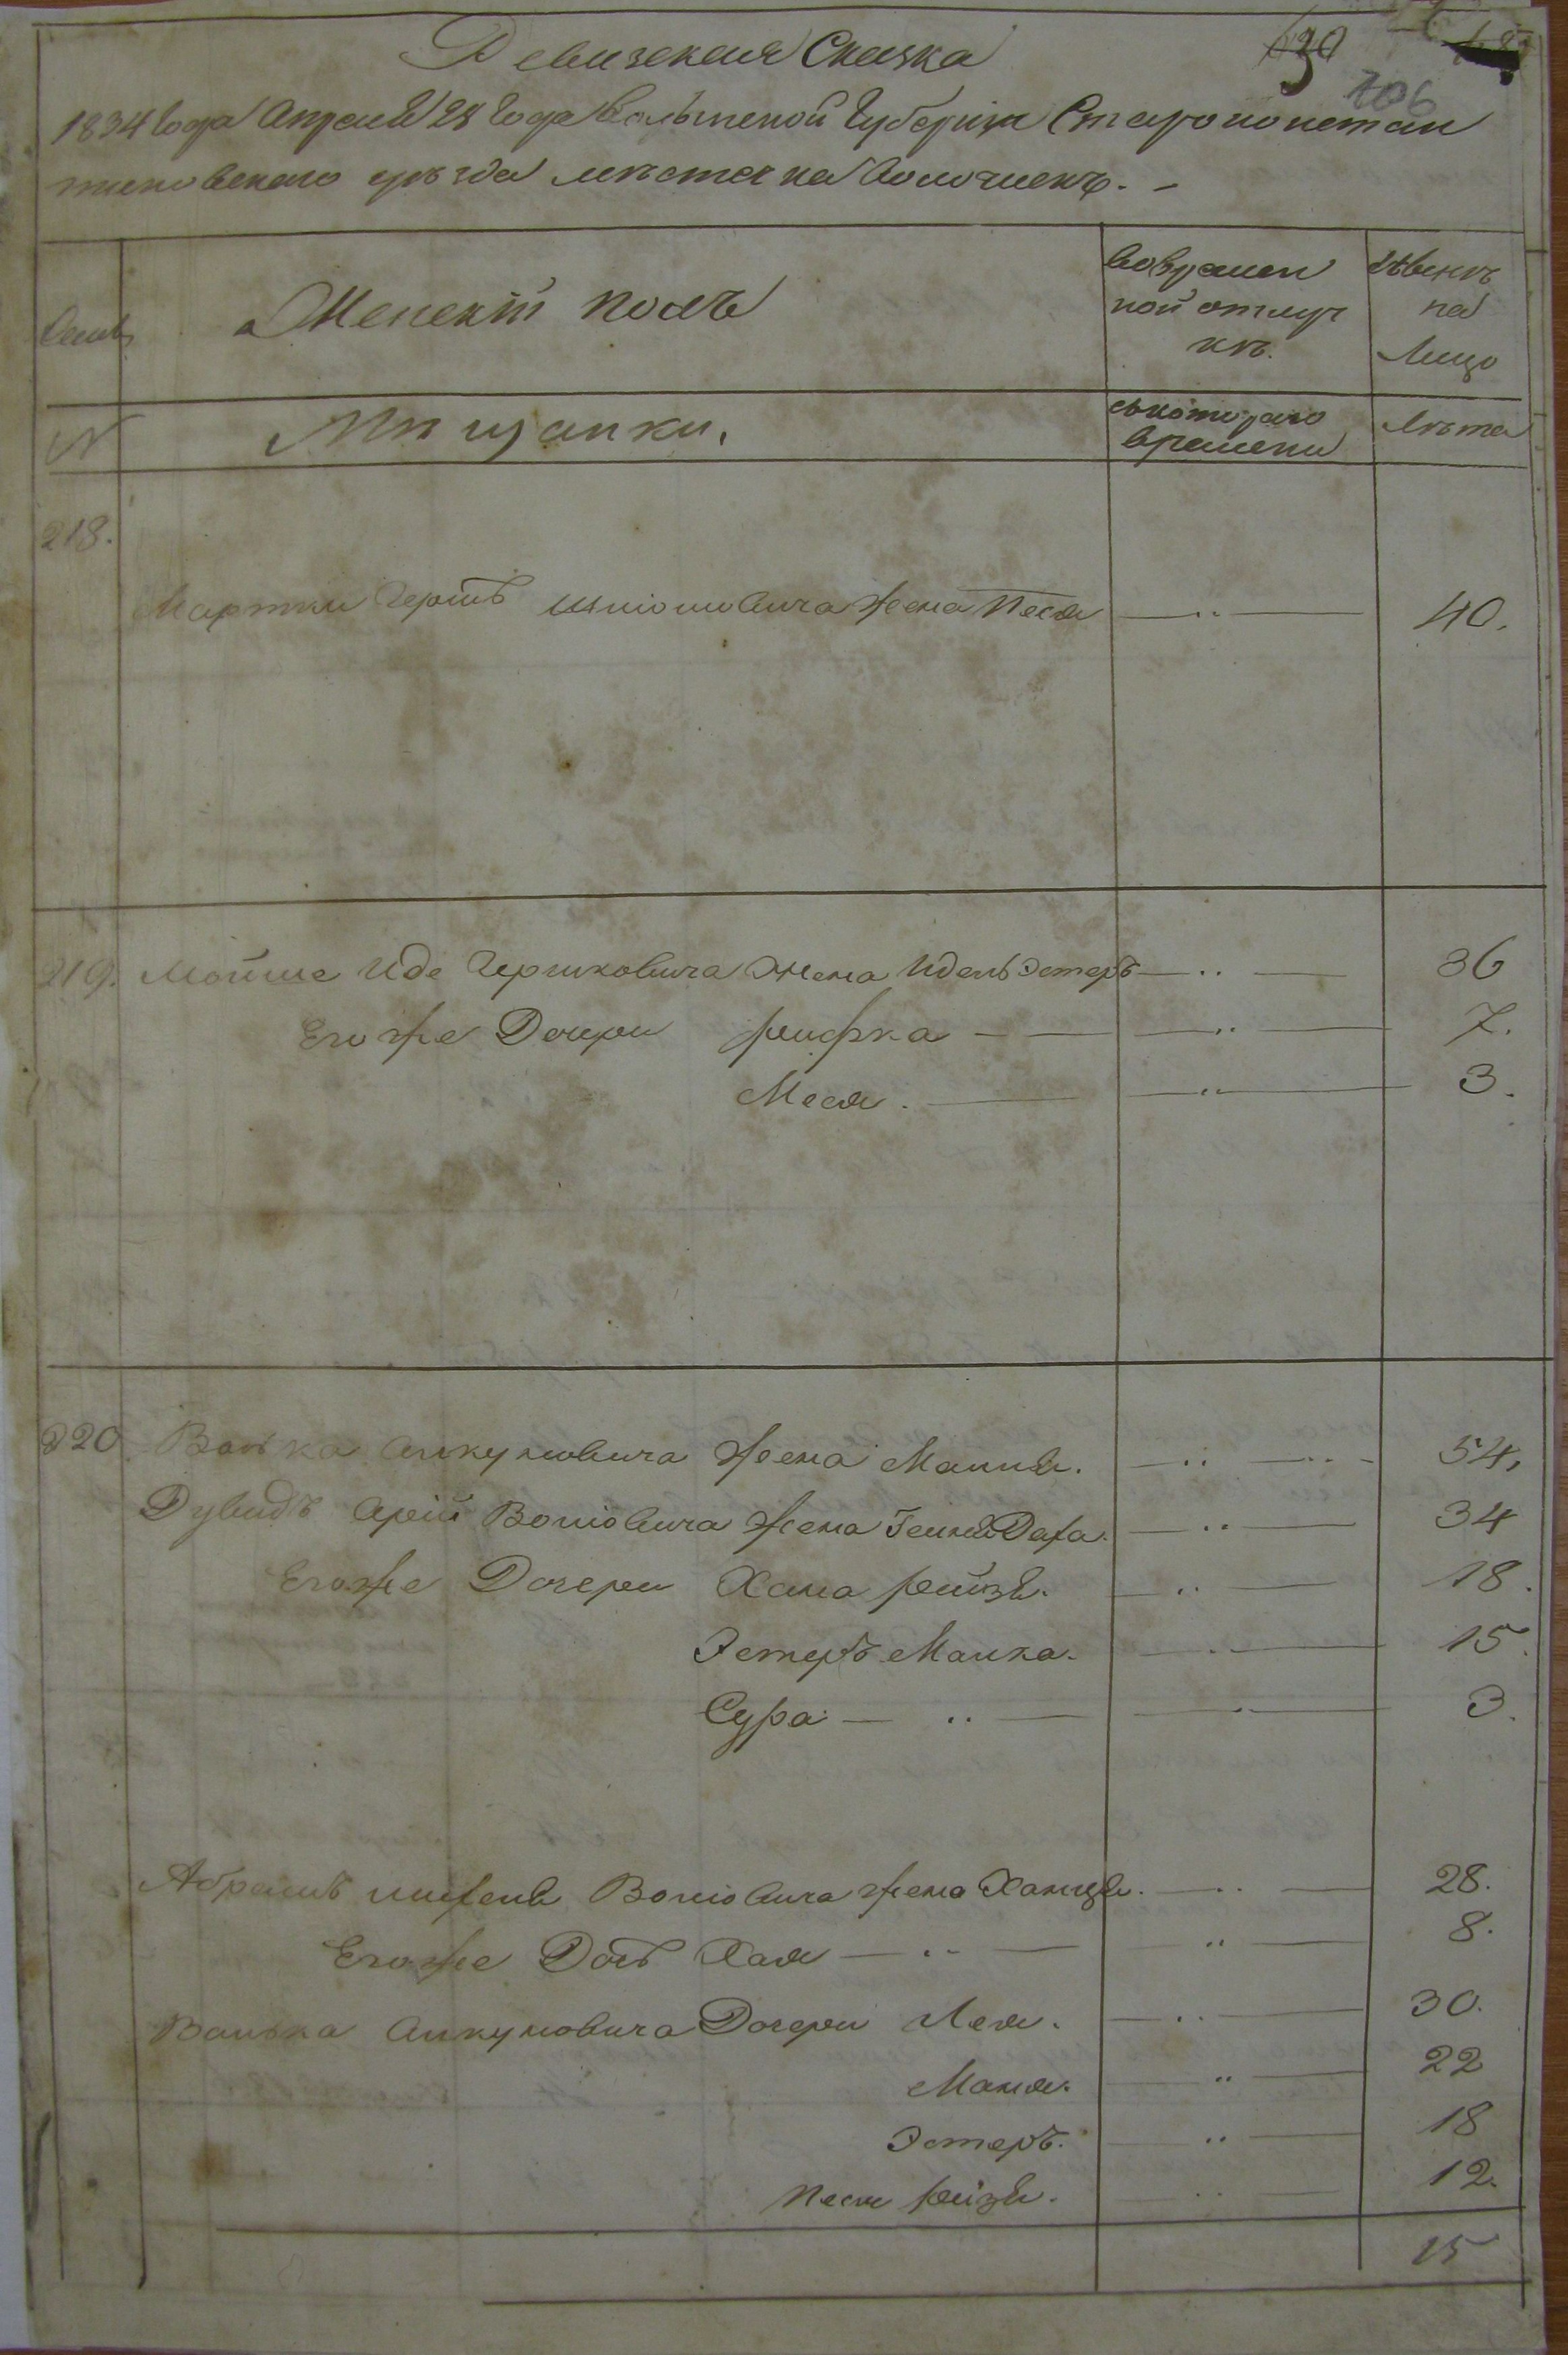 Ревизская Сказка
706
1834 года Апреля 28 года Волынской Губернии Староконстан
тиновского уѣзда мѣстечка Волочискъ. -
Семьи
Женскій полъ
Во времен
ной отлуч
кѣ.
Нынѣ
на
Лицо
№
Мѣщанки.
съ котораго
времени
Лѣта
218.
Мартки Гершъ Шліомовича жена Песя 40.
219. Мойше Иде Гершковича жена Идель Эстеръ 36
Его же Дочери Рифка 7.
Меся. 3.
220 Волька Анкуловича жена Маннъ. 54,
Дувидъ Арій Воліовича жена Генія Даха. 34
Его же Дочери Хана Рейзя. 18.
Эстеръ Малка. 15.
Сура 3.
Абрамъ Воліовича жена Ханця. 28.
Его же Дочь Хая 8.
Волька Анкуловича Дочери Лея. 30.
Маля. 22
Эстеръ. 18
Песя Рейзя. 12.
15